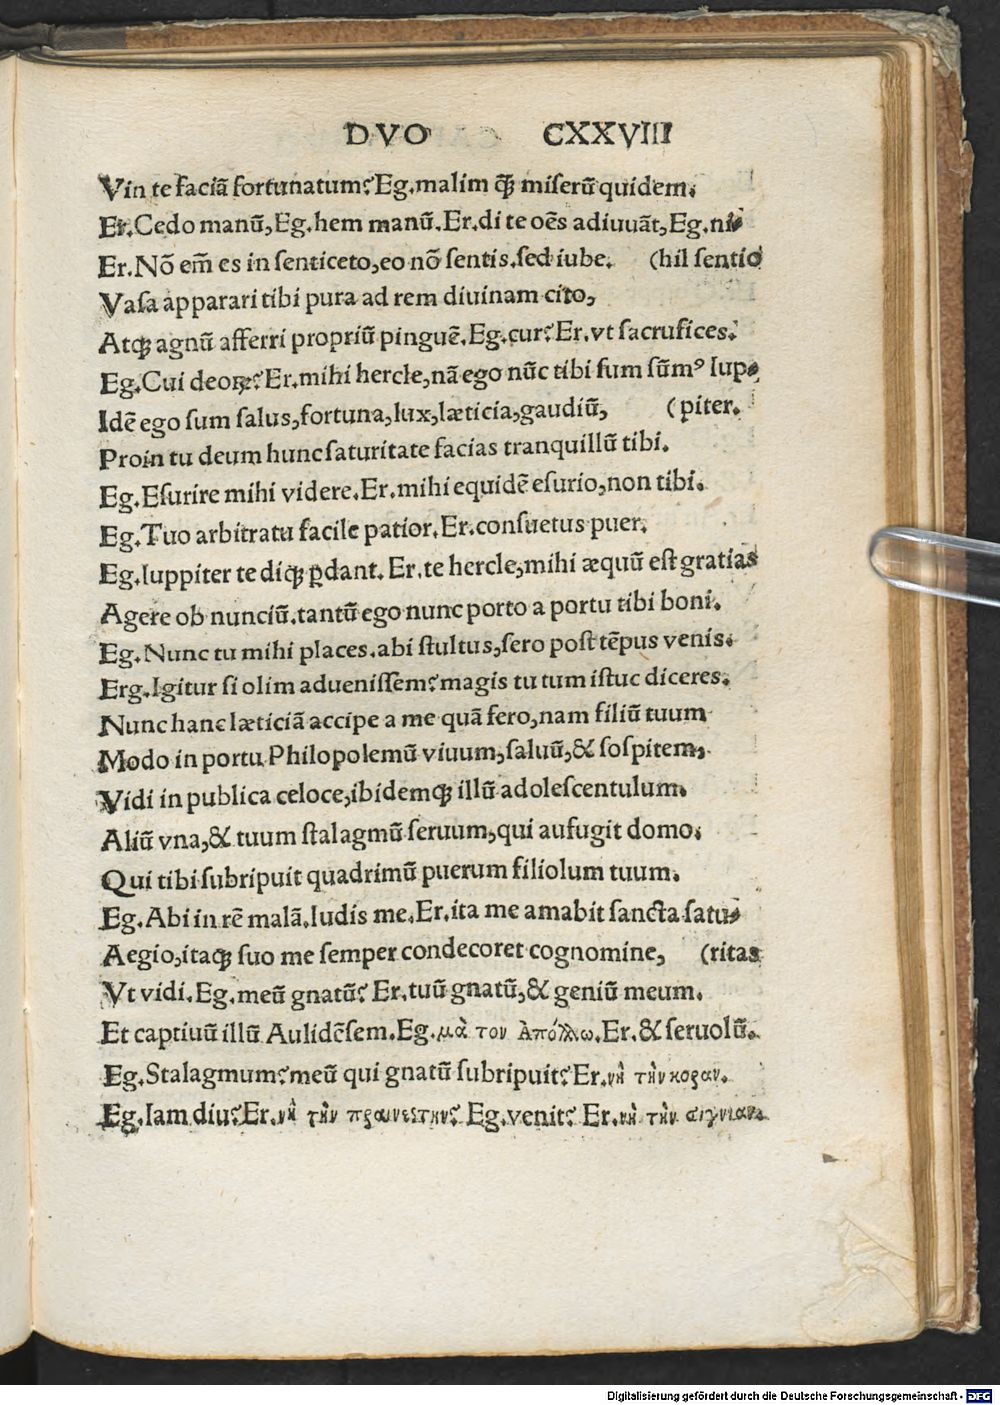 DVO CXXVIII
Vin te faciã fortunatum? Eg.malim q̃ꝫ miserũ quidem.
Er.Cedo manũ,Eg.hem manũ.Er.di te oẽs adiuuãt,Eg.ni-
Er.Nõ em̃ es in senticeto,eo nõ sentis.sed iube. (hil sentio
Vasa apparari tibi pura ad rem diuinam cito,
Atqꝫ agnũ afferri propriũ pinguẽ.Eg.cur? Er.vt sacrufices.
Eg.Cui deoꝝ? Er.mihi hercle,nã ego nũc tibi sum sũmꝰ Iup-
Idẽ ego sum salus,fortuna,lux,læticia,gaudiũ, (piter.
Proin tu deum hunc saturitate facias tranquillũ tibi.
Eg.Esurire mihi videre.Er.mihi equidẽ esurio,non tibi.
Eg.Tuo arbitratu facile patior.Er.consuetus puer.
Eg.Iuppiter te diqꝫ ꝑdant. Er.te hercle,mihi æquũ est gratias
Agere ob nunciũ.tantũ ego nunc porto a portu tibi boni.
Eg.Nunc tu mihi places.abi stultus,sero post tẽpus venis.
Erg.Igitur si olim aduenissem? magis tu tum istuc diceres.
Nunc hanc læticiã accipe a me quã fero,nam filiũ tuum
Modo in portu Philopolemũ viuum,saluũ,& sospitem,
Vidi in publica celoce,ibidemqꝫ illũ adolescentulum.
Aliũ vna,& tuum stalagmũ seruum,qui aufugit domo.
Qui tibi subripuit quadrimũ puerum filiolum tuum.
Eg.Abi in rẽ malã.ludis me.Er.ita me amabit sancta satu-
Aegio,itaqꝫ suo me semper condecoret cognomine, (ritas
Vt vidi.Eg.meũ gnatũ? Er.tuũ gnatũ,& geniũ meum.
Et captiuũ illũ Aulidẽsem.Eg.μὰ τον Ἀπόλλω.Er.& seruolũ.
Eg.Stalagmum? meũ qui gnatũ subripuit? Er.νὴ τὴν κοραν.
Eg.Iam diu? Er.νὴ τὴν πραινεστην? Eg.venit? Er.νὴ τὴν σιγνιαν.
Digitalisierung gefördert durch die Deutsche Forschungsgemeinschaft - DFG